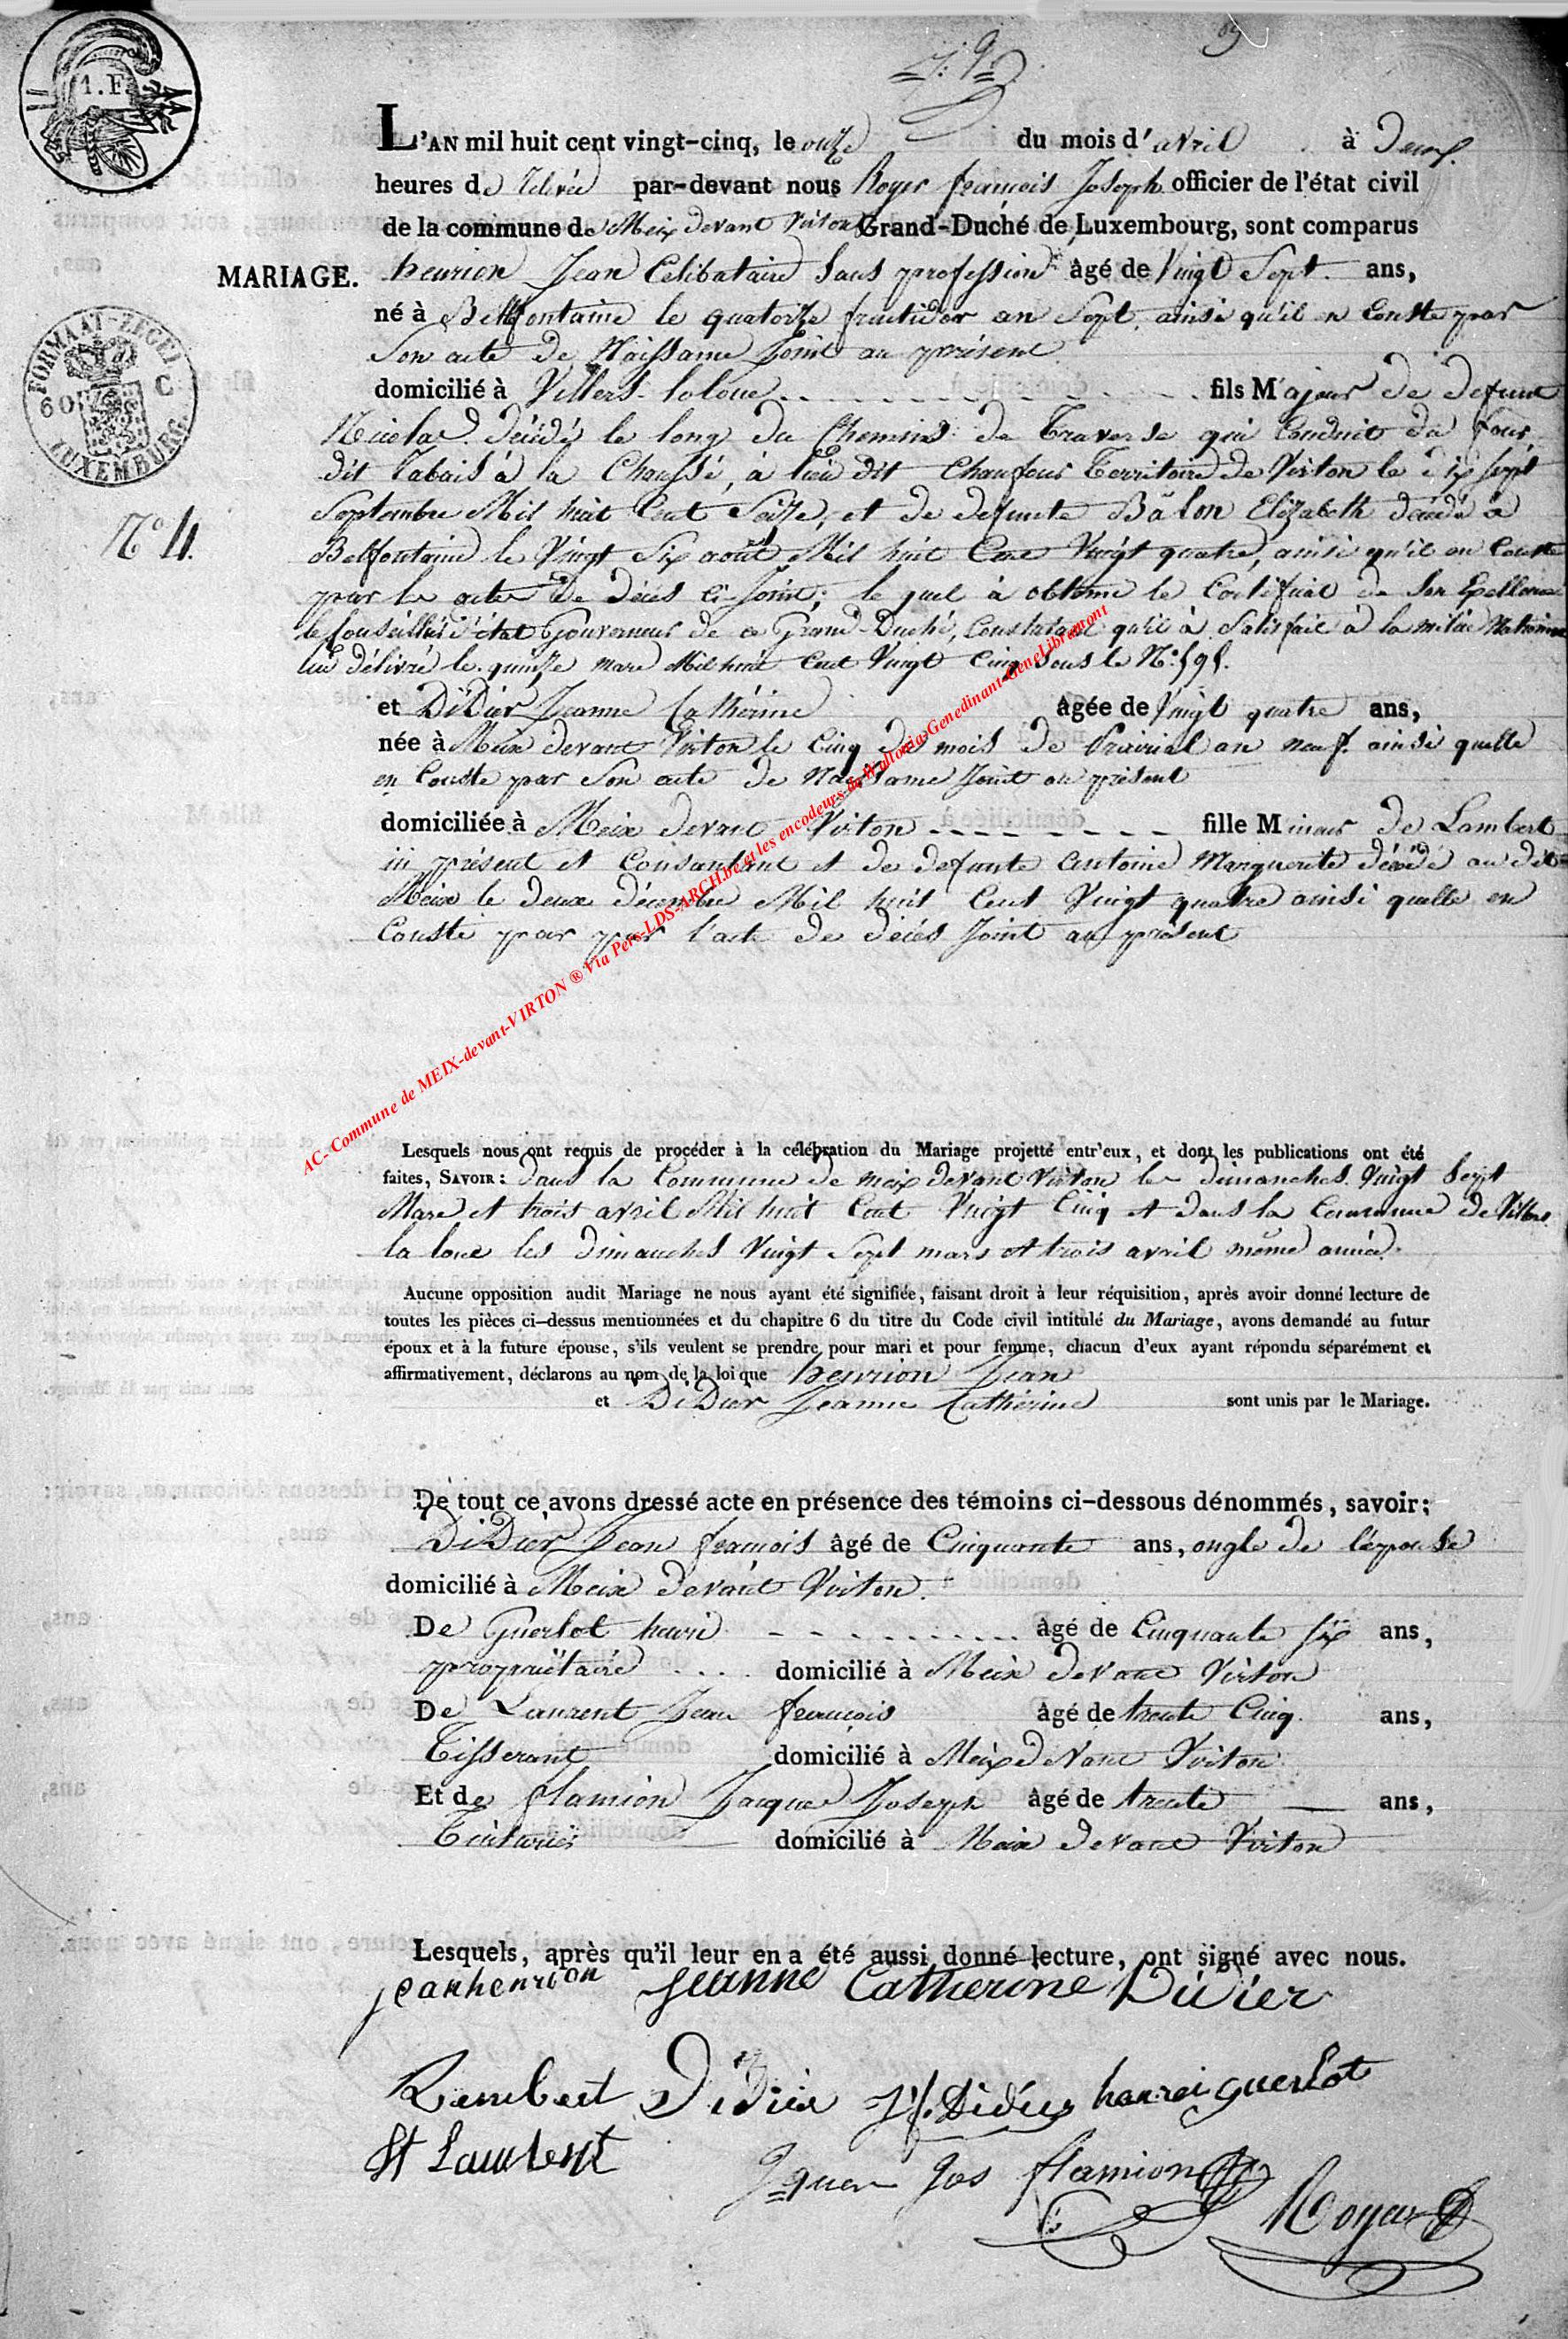 1. F.
L'AN mil huit cent vingt-cinq, le onze du mois d'avril à deux
heures de relevée par-devant nous Roger françois Joseph officier de l'état civil
de la commune de Meix devant Virton Grand-Duché de Luxembourg, sont comparus
MARIAGE.
henrion Jean Celibataire Sans profession âgé de Vingt Sept ans,
né à Bellfontaine le quatorze fructidor an Sept ainsi qu'il en Conste par
Son acte de Naissance Joint au présent
FORMAAT-ZEGEL
60 C
LUXEMBURG.
domicilié à Villers-laloue fils Majeur de defunt
Nicolas décédé le long du Chemin de Traverse qui Conduit du four
dit Rabais à la Chaussé, à lieu dit Chaufour Territoire de Virton le dix Sept
Septembre Mil huit Cent Seize, et de defunte Bâlon Elizabeth décédé à
N° 4.
Belfontaine le Vingt Six août Mil huit Cent Vingt quatre, ainsi qu'il en Conste
par les actes de décès ci-Joint; le quel à obtenu le Certificat de Son Exellence
le Conseiller d'état Gouverneur de ce Grand-Duché, Constatant qu'il à Satisfait à la milice Nationale
lui délivré le quinze mars Mil huit Cent Vingt Cinq Sous le N° 595.
et DiDier Jeanne Cathérine âgée de Vingt quatre ans,
née à Meix devant Virton le Cinq du mois de Prairial an neuf ainsi quelle
en Conste par Son acte de Naissance Joint au présent
domiciliée à Meix devant Virton fille Mineur de Lambert
ici présent et Consentant et de defunte Antoine Marguerite décédé au dit
Meix le deux décembre Mil huit Cent Vingt quatre ainsi quelle en
Conste par par l'acte de décès Joint au présent
AC- Commune de MEIX-devant-VIRTON ® Via Pers-LDS-ARCH.be et les encodeurs de Wallonia-Genedinant-GeneLibremont
Lesquels nous ont requis de procéder à la célébration du Mariage projetté entr'eux, et dont les publications ont été
faites, SAVOIR: dans la Commune de meix devant Virton les dimanches Vingt Sept
Mars et trois avril Mil huit Cent Vingt Cinq et dans la Commune de Villers
la loue les dimanches Vingt Sept mars et trois avril même année.
Aucune opposition audit Mariage ne nous ayant été signifiée, faisant droit à leur réquisition, après avoir donné lecture de
toutes les pièces ci-dessus mentionnées et du chapitre 6 du titre du Code civil intitulé du Mariage, avons demandé au futur
époux et à la future épouse, s'ils veulent se prendre pour mari et pour femme, chacun d'eux ayant répondu séparément et
affirmativement, déclarons au nom de la loi que henrion Jean
et DiDier Jeanne Cathérine sont unis par le Mariage.
De tout ce avons dressé acte en présence des témoins ci-dessous dénommés, savoir:
DiDier Jean françois âgé de Cinquante ans, ongle de l'épouse
domicilié à Meix devant Virton.
De Guerlot henri âgé de Cinquante six ans,
propriétaire domicilié à Meix devant Virton
De Laurent Jean françois âgé de trente Cinq ans,
Tisserant domicilié à Meix devant Virton
Et de flamion Jacque Joseph âgé de trente ans,
Teinturier domicilié à Meix devant Virton
Lesquels, après qu'il leur en a été aussi donné lecture, ont signé avec nous.
jeanhenrion Jeanne Catherine Didier
Lembert Didier J f. Didier henrei guerlot
Laurent
Jos flamion
Roger